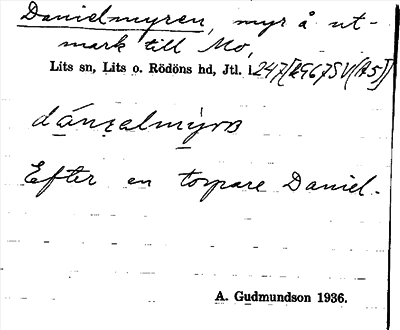 Danielmyren, myr å ut-
mark till Mo,
Lits sn, Lits o. Rödöns hd, Jtl. l.
dánɪalmỳrɒ
Efter en torpare Daniel.
A. Gudmundson 1936.